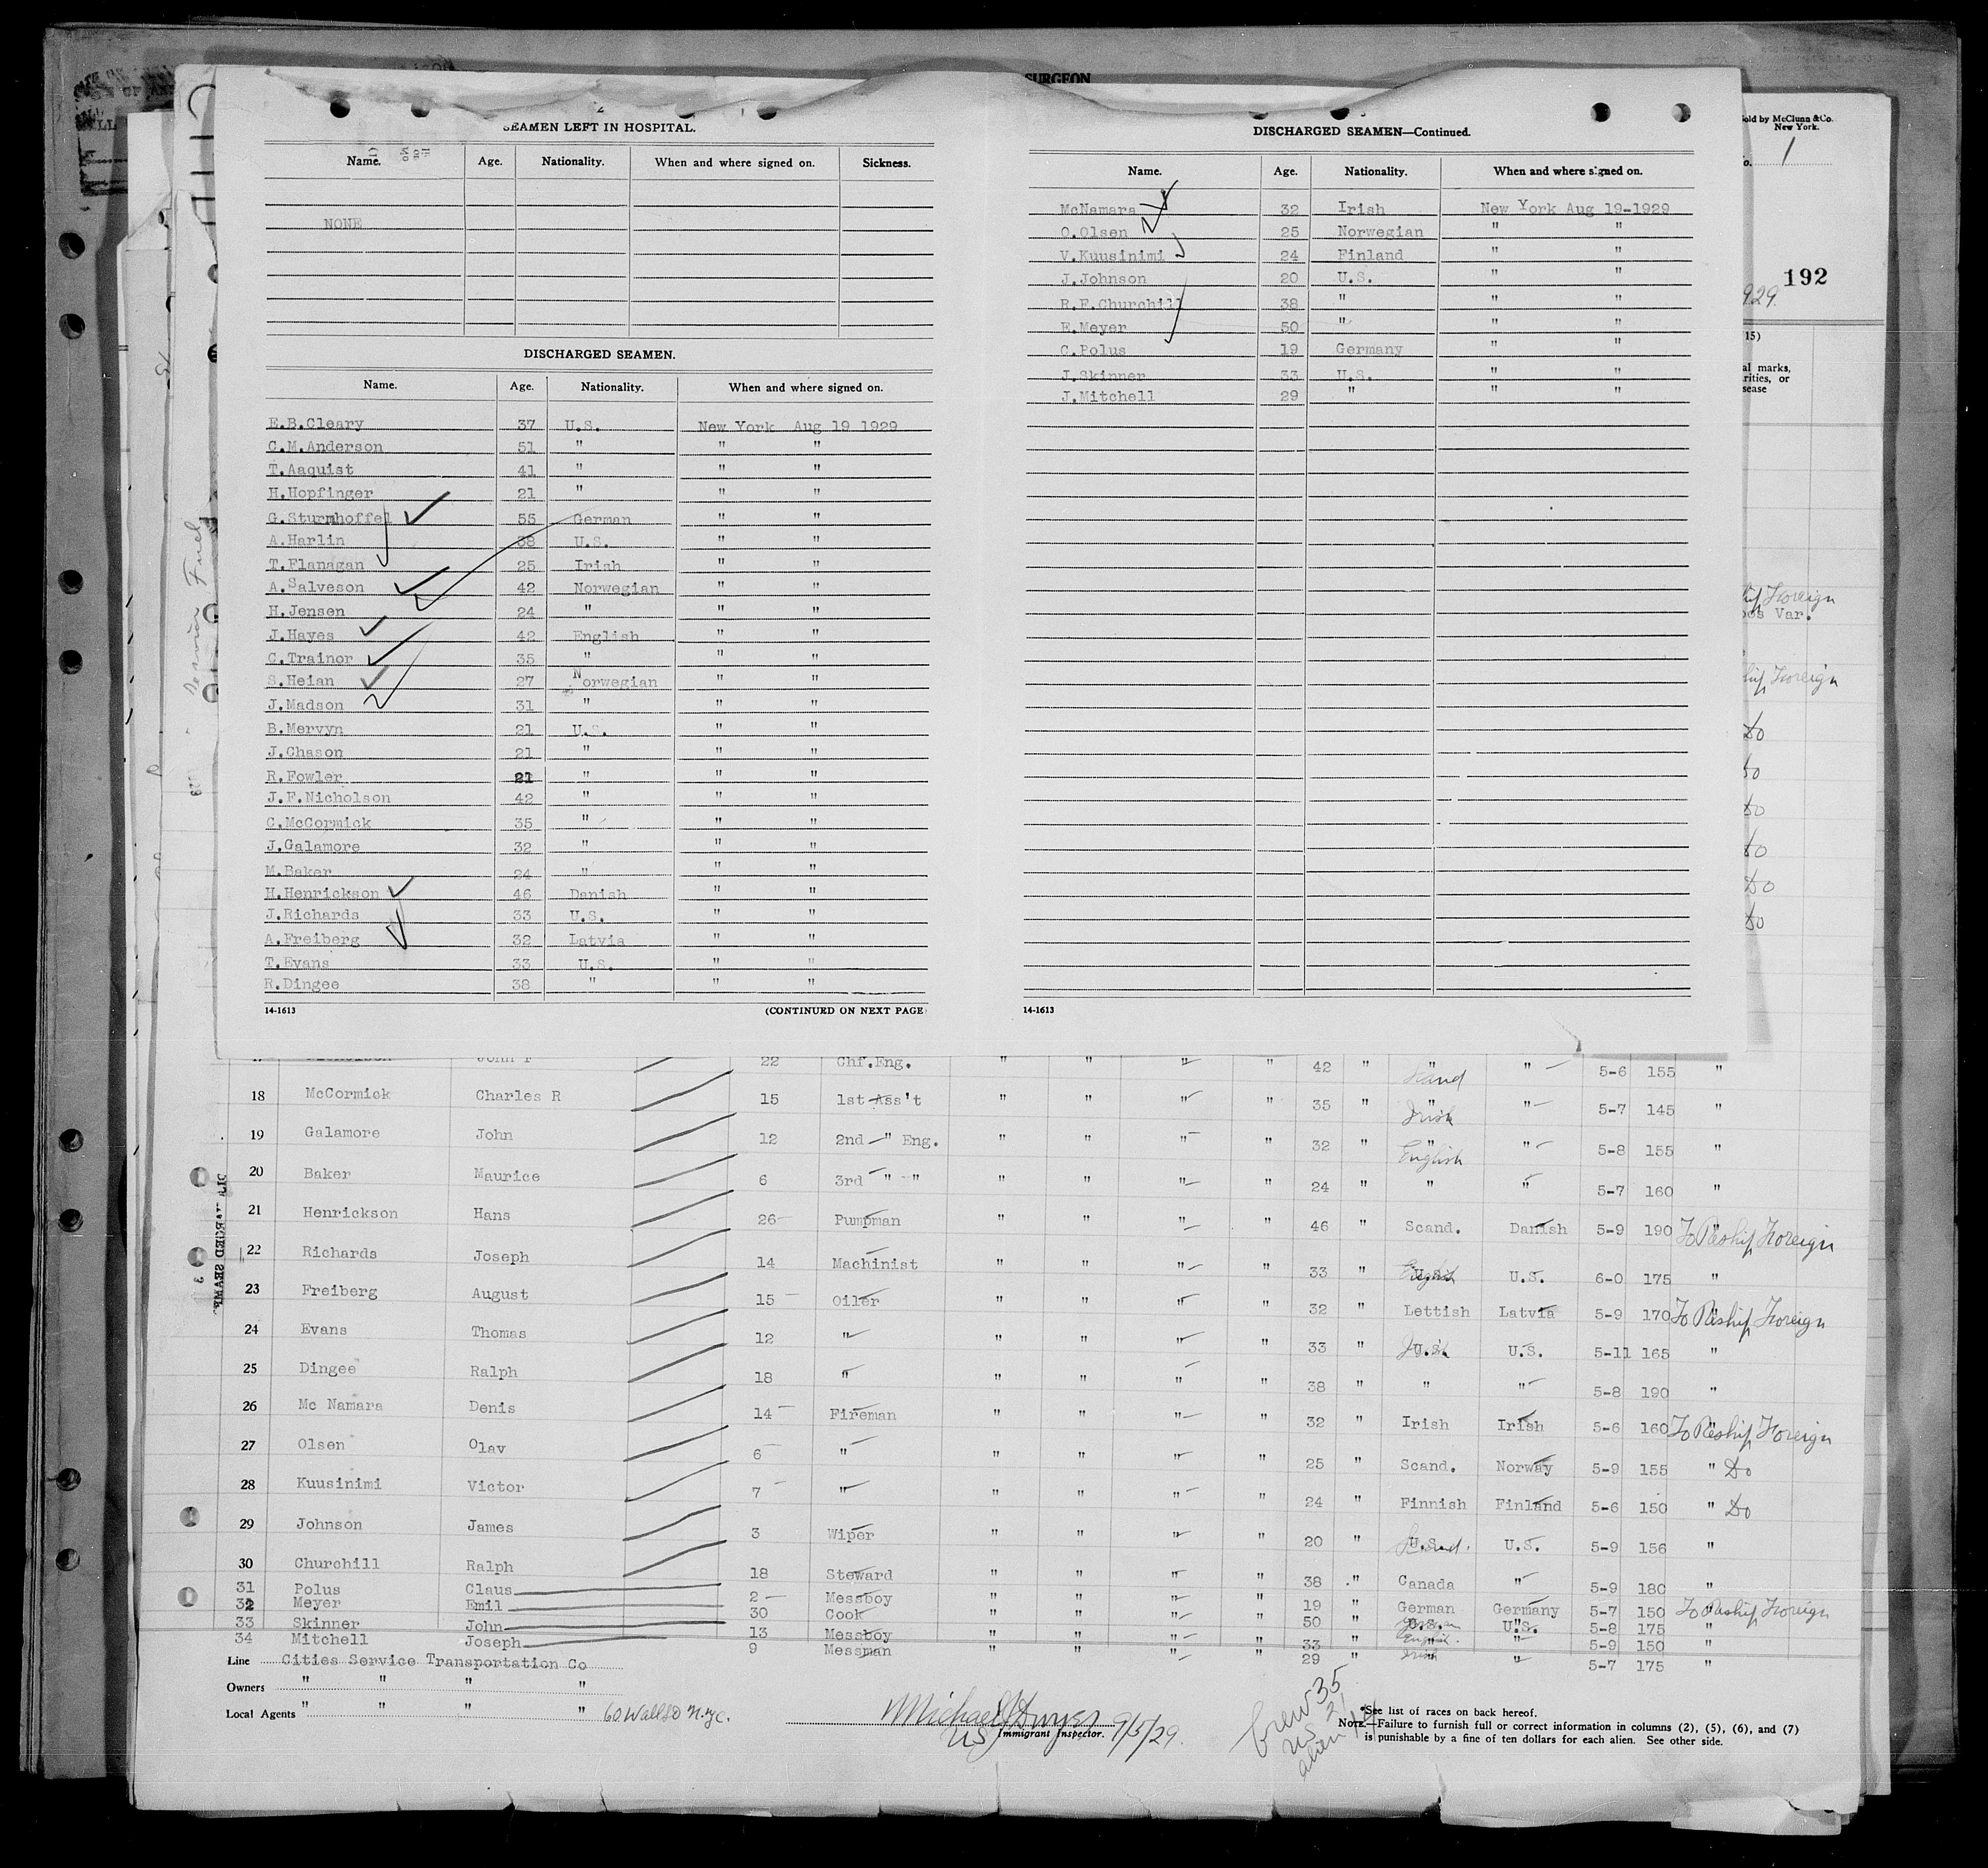 SURGEON
SEAMEN LEFT IN HOSPITAL.
Name. Age. Nationality. When and where signed on. Sickness.
NONE
DISCHARGED SEAMEN.
Name. Age. Nationality. When and where signed on.
E.B.Cleary 37 U.S. New York Aug 19 1929
C.M.Anderson 51 " " "
T.Aaquist 41 " " "
H.Hopfinger 21 " " "
G.Sturmhoffel 55 German " "
A.Harlin 38 U.S. " "
T.Flanagan 25 Irish " "
A.Salveson 42 Norwegian " "
H.Jensen 24 " " "
J.Hayes 42 English " "
C.Trainor 35 " " "
S.Heian 27 Norwegian " "
J.Madson 31 " " "
B.Mervyn 21 U.S. " "
J.Chason 21 " " "
R.Fowler 21 " " "
J.F.Nicholson 42 " " "
C.McCormick 35 " " "
J.Galamore 32 " " "
M.Baker 24 " " "
H.Henrickson 46 Danish " "
J.Richards 33 U.S. " "
A.Freiberg 32 Latvia " "
T.Evans 33 U.S. " "
R.Dingee 38 " " "
14-1613 (CONTINUED ON NEXT PAGE)
DISCHARGED SEAMEN—Continued.
Name. Age. Nationality. When and where signed on.
McNamara 32 Irish New York Aug 19-1929
O.Olsen 25 Norwegian " "
V.Kuusinimi 24 Finland " "
J.Johnson 20 U.S. " "
R.F.Churchill 38 " " "
E.Meyer 50 " " "
C.Polus 19 Germany " "
J.Skinner 33 U.S. " "
J.Mitchell 29 " " "
14-1613
Sold by McClunn & Co.
New York.
No. 1
192
929
(15)
al marks,
rities, or
sease
Foreign
Var.
Foreign
Do
Do
Do
Do
Do
Do
John F 22 Chf.Eng. " " " " 42 " " " 5-6 155 "
18 McCormick Charles R 15 1st Ass't " " " " 35 " Scand " 5-7 145 "
19 Galamore John 12 2nd " Eng. " " " " 32 " Irish " 5-8 155 "
20 Baker Maurice 6 3rd " " " " " " 24 " English " 5-7 160 "
21 Henrickson Hans 26 Pumpman " " " " 46 " Scand. Danish 5-9 190 To Reship Foreign
22 Richards Joseph 14 Machinist " " " " 33 " English U.S. 6-0 175 "
23 Freiberg August 15 Oiler " " " " 32 " Lettish Latvia 5-9 170 To Reship Foreign
24 Evans Thomas 12 " " " " " 33 " U.S. U.S. 5-11 165 "
25 Dingee Ralph 18 " " " " " 38 " " " 5-8 190 "
26 Mc Namara Denis 14 Fireman " " " " 32 " Irish Irish 5-6 160 To Reship Foreign
27 Olsen Olav 6 " " " " " 25 " Scand. Norway 5-9 155 " Do
28 Kuusinimi Victor 7 " " " " " 24 " Finnish Finland 5-6 150 " Do
29 Johnson James 3 Wiper " " " " 20 " U.S. U.S. 5-9 156 "
30 Churchill Ralph 18 Steward " " " " 38 " Canada " 5-9 180 "
31 Polus Claus 2 Messboy " " " " 19 " German Germany 5-7 150 To Reship Foreign
32 Meyer Emil 30 Cook " " " " 50 " U.S. U.S. 5-8 175 "
33 Skinner John 13 Messboy " " " " 33 " English. " 5-9 150 "
34 Mitchell Joseph 9 Messman " " " " 29 " Irish " 5-7 175 "
Line Cities Service Transportation Co
Owners " " " "
Local Agents " " " " 60 Wall St N.Y.C.
Michael J Dwyer
US Immigrant Inspector. 9/5/29.
Crew 35
US 21
alien 14
*See list of races on back hereof.
NOTE.—Failure to furnish full or correct information in columns (2), (5), (6), and (7)
is punishable by a fine of ten dollars for each alien. See other side.